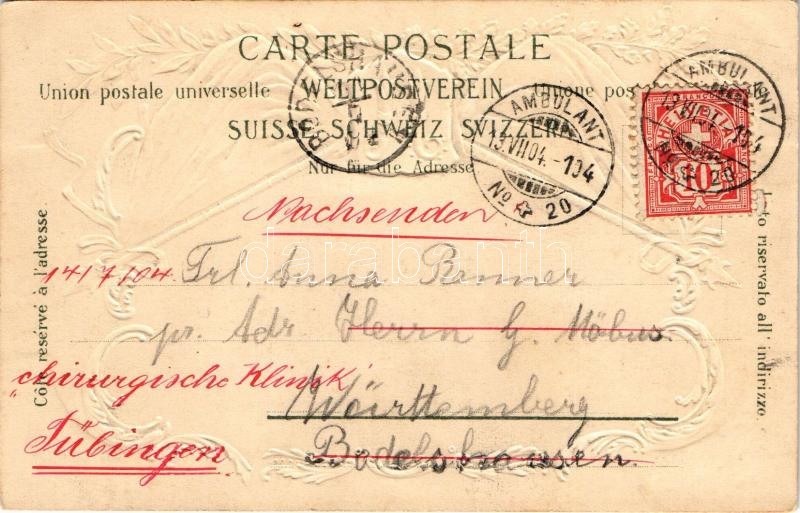 CARTE POSTALE
Union postale universelle WELTPOSTVEREIN Unione pos
SUISSE SCHWEIZ SVIZZERA
Nur für die Adresse
AMBULANT
13.VII.04.-104
No 20
AMBULANT
No 20
HELVETIA
FRANCO
10
Nachsenden
14/7/04. Frl. Anna Renner
pr. Adr Herrn G. Möbus
"chirurgische Klinik"
Württemberg
Tübingen
Bodelshausen.
Côté reservé à l'adresse
to riservato all' indirizzo
darabanth